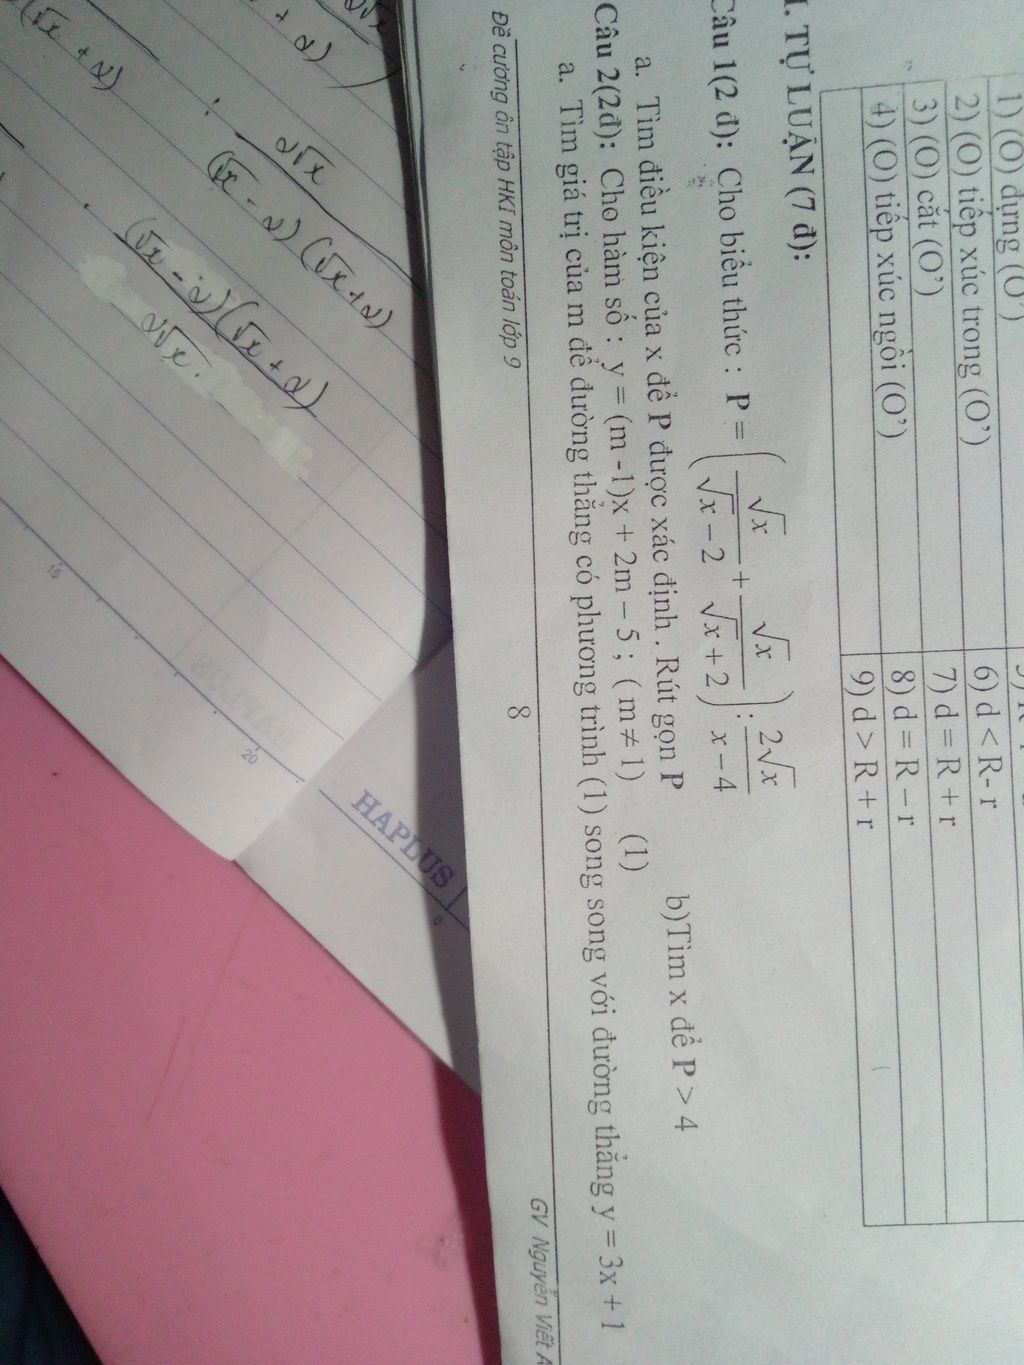 1) (O) đựng (O’)
2) (O) tiếp xúc trong (O’)
6) d < R- r
3) (O) cắt (O’)
7) d = R + r
4) (O) tiếp xúc ngồi (O’)
8) d = R – r
9) d > R + r
I. TỰ LUẬN (7 đ):
Câu 1(2 đ): Cho biểu thức : P = (√x/(√x − 2) + √x/(√x + 2)) : 2√x/(x − 4)
a. Tìm điều kiện của x để P được xác định . Rút gọn P b)Tìm x để P > 4
Câu 2(2đ): Cho hàm số : y = (m -1)x + 2m – 5 ; ( m ≠ 1) (1)
a. Tìm giá trị của m để đường thẳng có phương trình (1) song song với đường thẳng y = 3x + 1
Đề cương ôn tập HKI môn toán lớp 9
8
GV Nguyễn Viết
√x + 2)
(√x + 2)
: 2√x
(√x - 2) (√x + 2)
. (√x - 2) (√x + 2)
2√x.
16
20
HAPLUS
0